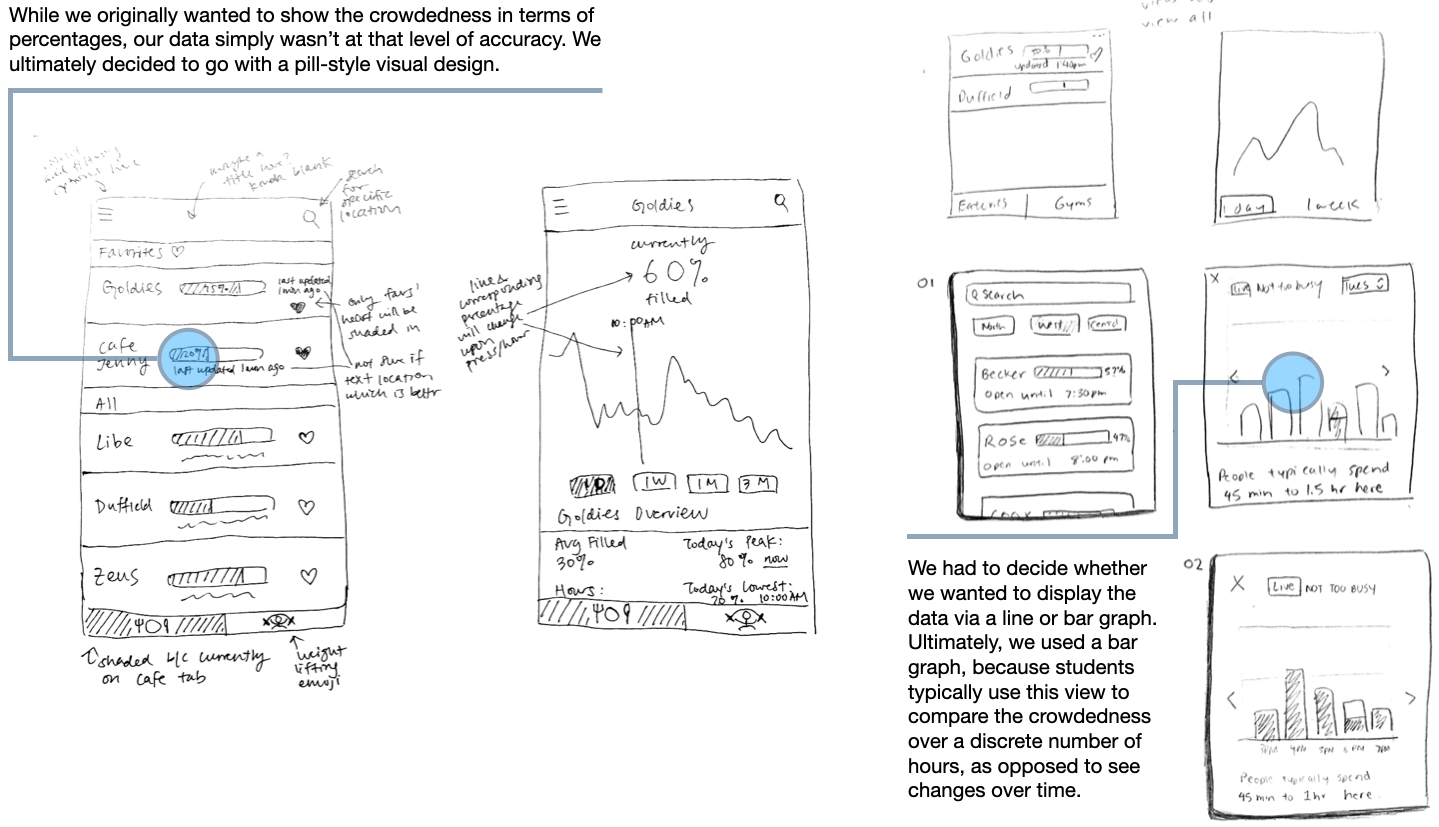 While we originally wanted to show the crowdedness in terms of
percentages, our data simply wasn't at that level of accuracy. We
ultimately decided to go with a pill-style visual design.
maybe a
title here?
kinda blank
search
for
specific
location
Favorites
Goldies
75%
last updated
1 min ago
Cafe
Jenny
20%
last updated 1 min ago
All
Libe
Duffield
Zeus
only favs'
heart will be
shaded in
not sure if
text location
which is better
shaded b/c currently
on cafe tab
weight
lifting
emoji
Goldies
currently
60%
filled
10:00AM
lines
corresponding
percentage
will change
upon
press/hover
1W
1M
3M
Goldies Overview
Avg Filled
30%
Today's Peak:
80% now
Hours:
Today's Lowest:
20% 10:00AM
view all
Goldies
updated 1:40pm
Duffield
Eateries
Gyms
1 day
1 week
01
Search
North
West
Central
Becker
57%
open until 7:30pm
Rose
47%
open until 8:00 pm
Cook
X
Live
Not too busy
Tues
<
>
People typically spend
45 min to 1.5 hr here
We had to decide whether
we wanted to display the
data via a line or bar graph.
Ultimately, we used a bar
graph, because students
typically use this view to
compare the crowdedness
over a discrete number of
hours, as opposed to see
changes over time.
02
X
LIVE
NOT TOO BUSY
<
>
3PM 4PM 5PM 6PM 7PM
People typically spend
45 min to 1hr here.